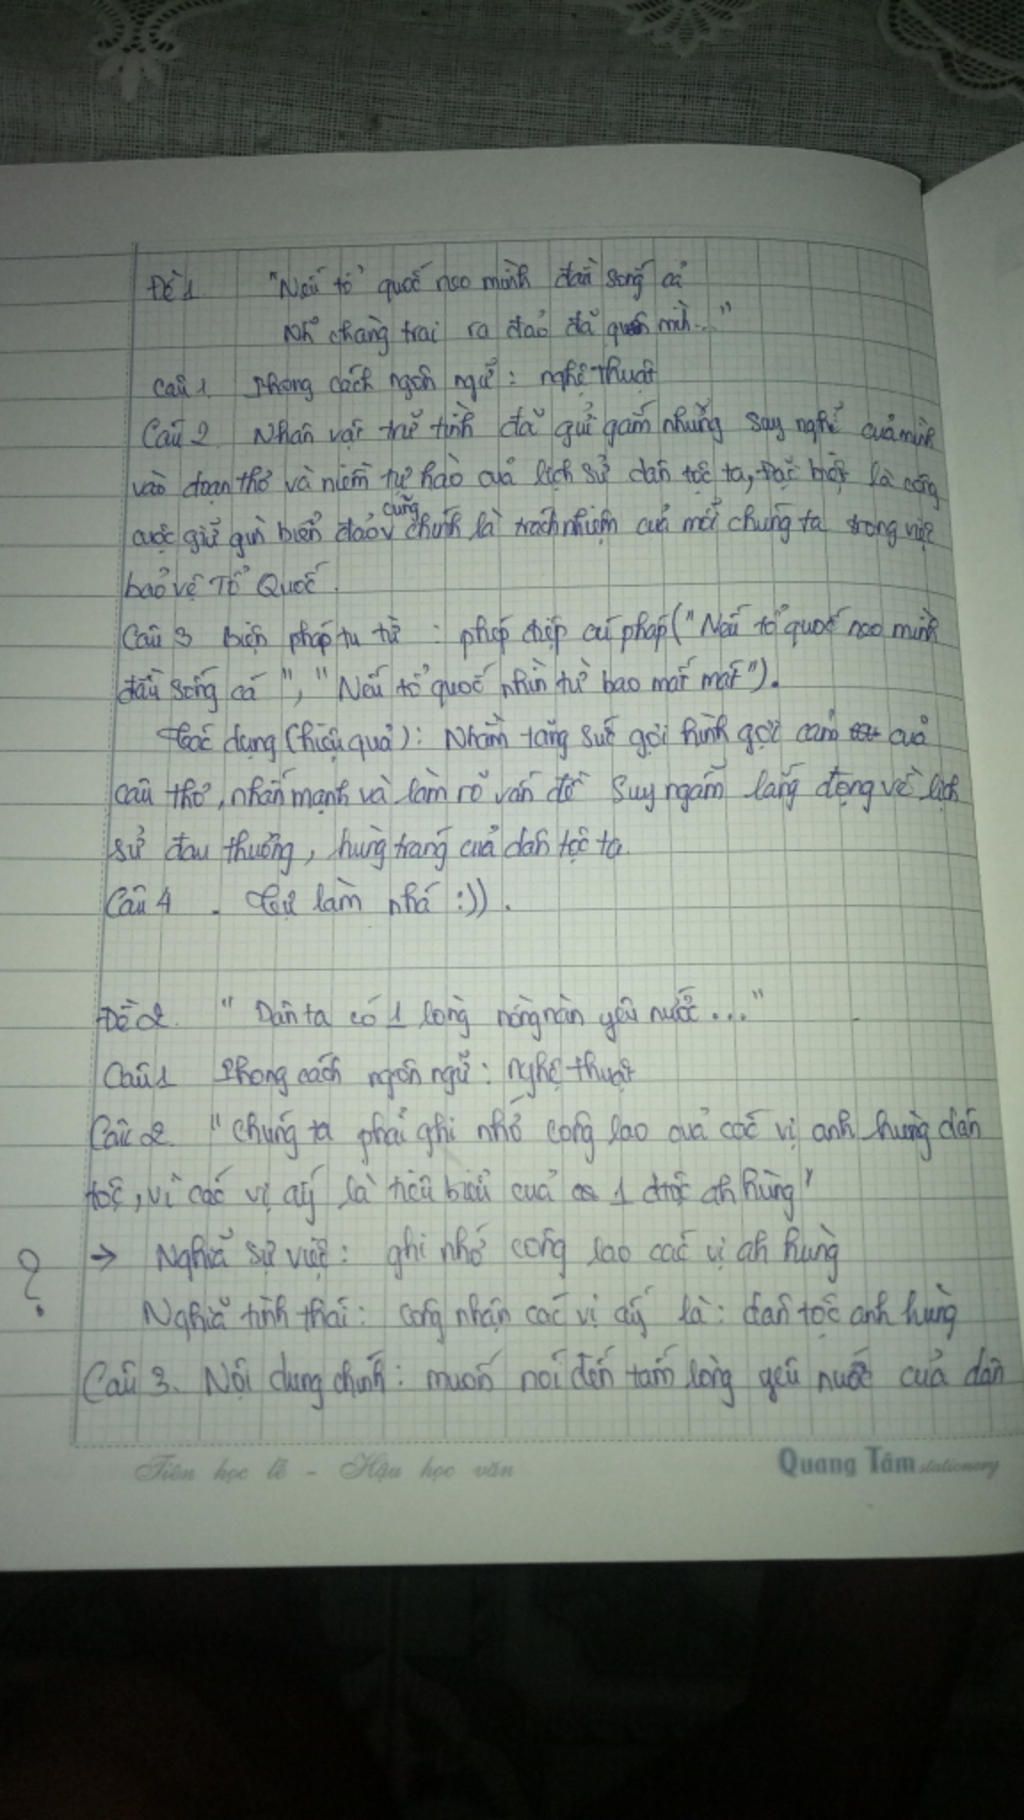 Đề 1 "Nếu tổ quốc neo mình đầu sóng cả
Như chàng trai ra đảo đã quên mình..."
Câu 1. Phong cách ngôn ngữ : nghệ thuật
Câu 2 Nhân vật trữ tình đã gửi gắm những suy nghĩ của mình
vào đoạn thơ và niềm tự hào của lịch sử dân tộc ta, đặc biệt là công
cuộc giữ gìn biển đảo cũng chính là trách nhiệm của mỗi chúng ta trong việc
bảo vệ Tổ Quốc.
Câu 3 Biện pháp tu từ : phép điệp cú pháp ("Nếu tổ quốc neo mình
đầu sóng cả", "Nếu tổ quốc nhìn từ bao mất mát").
Tác dụng (hiệu quả): Nhằm tăng sức gợi hình gợi cảm của
câu thơ, nhấn mạnh và làm rõ vấn đề suy ngẫm lắng đọng về lịch
sử đau thương, hùng tráng của dân tộc ta.
Câu 4 . Tự làm nhá :)).
Đề 2. " Dân ta có 1 lòng nồng nàn yêu nước..."
Câu 1 Phong cách ngôn ngữ : nghệ thuật
Câu 2. "Chúng ta phải ghi nhớ công lao của các vị anh hùng dân
tộc, vì các vị ấy là tiêu biểu của 1 dtộc ah hùng"
? → Nghĩa sự việc : ghi nhớ công lao các vị ah hùng
Nghĩa tình thái : công nhận các vị ấy là : dân tộc anh hùng
Câu 3. Nội dung chính : muốn nói đến tấm lòng yêu nước của dân
Tiên học lễ - Hậu học văn Quang Tâm stationery